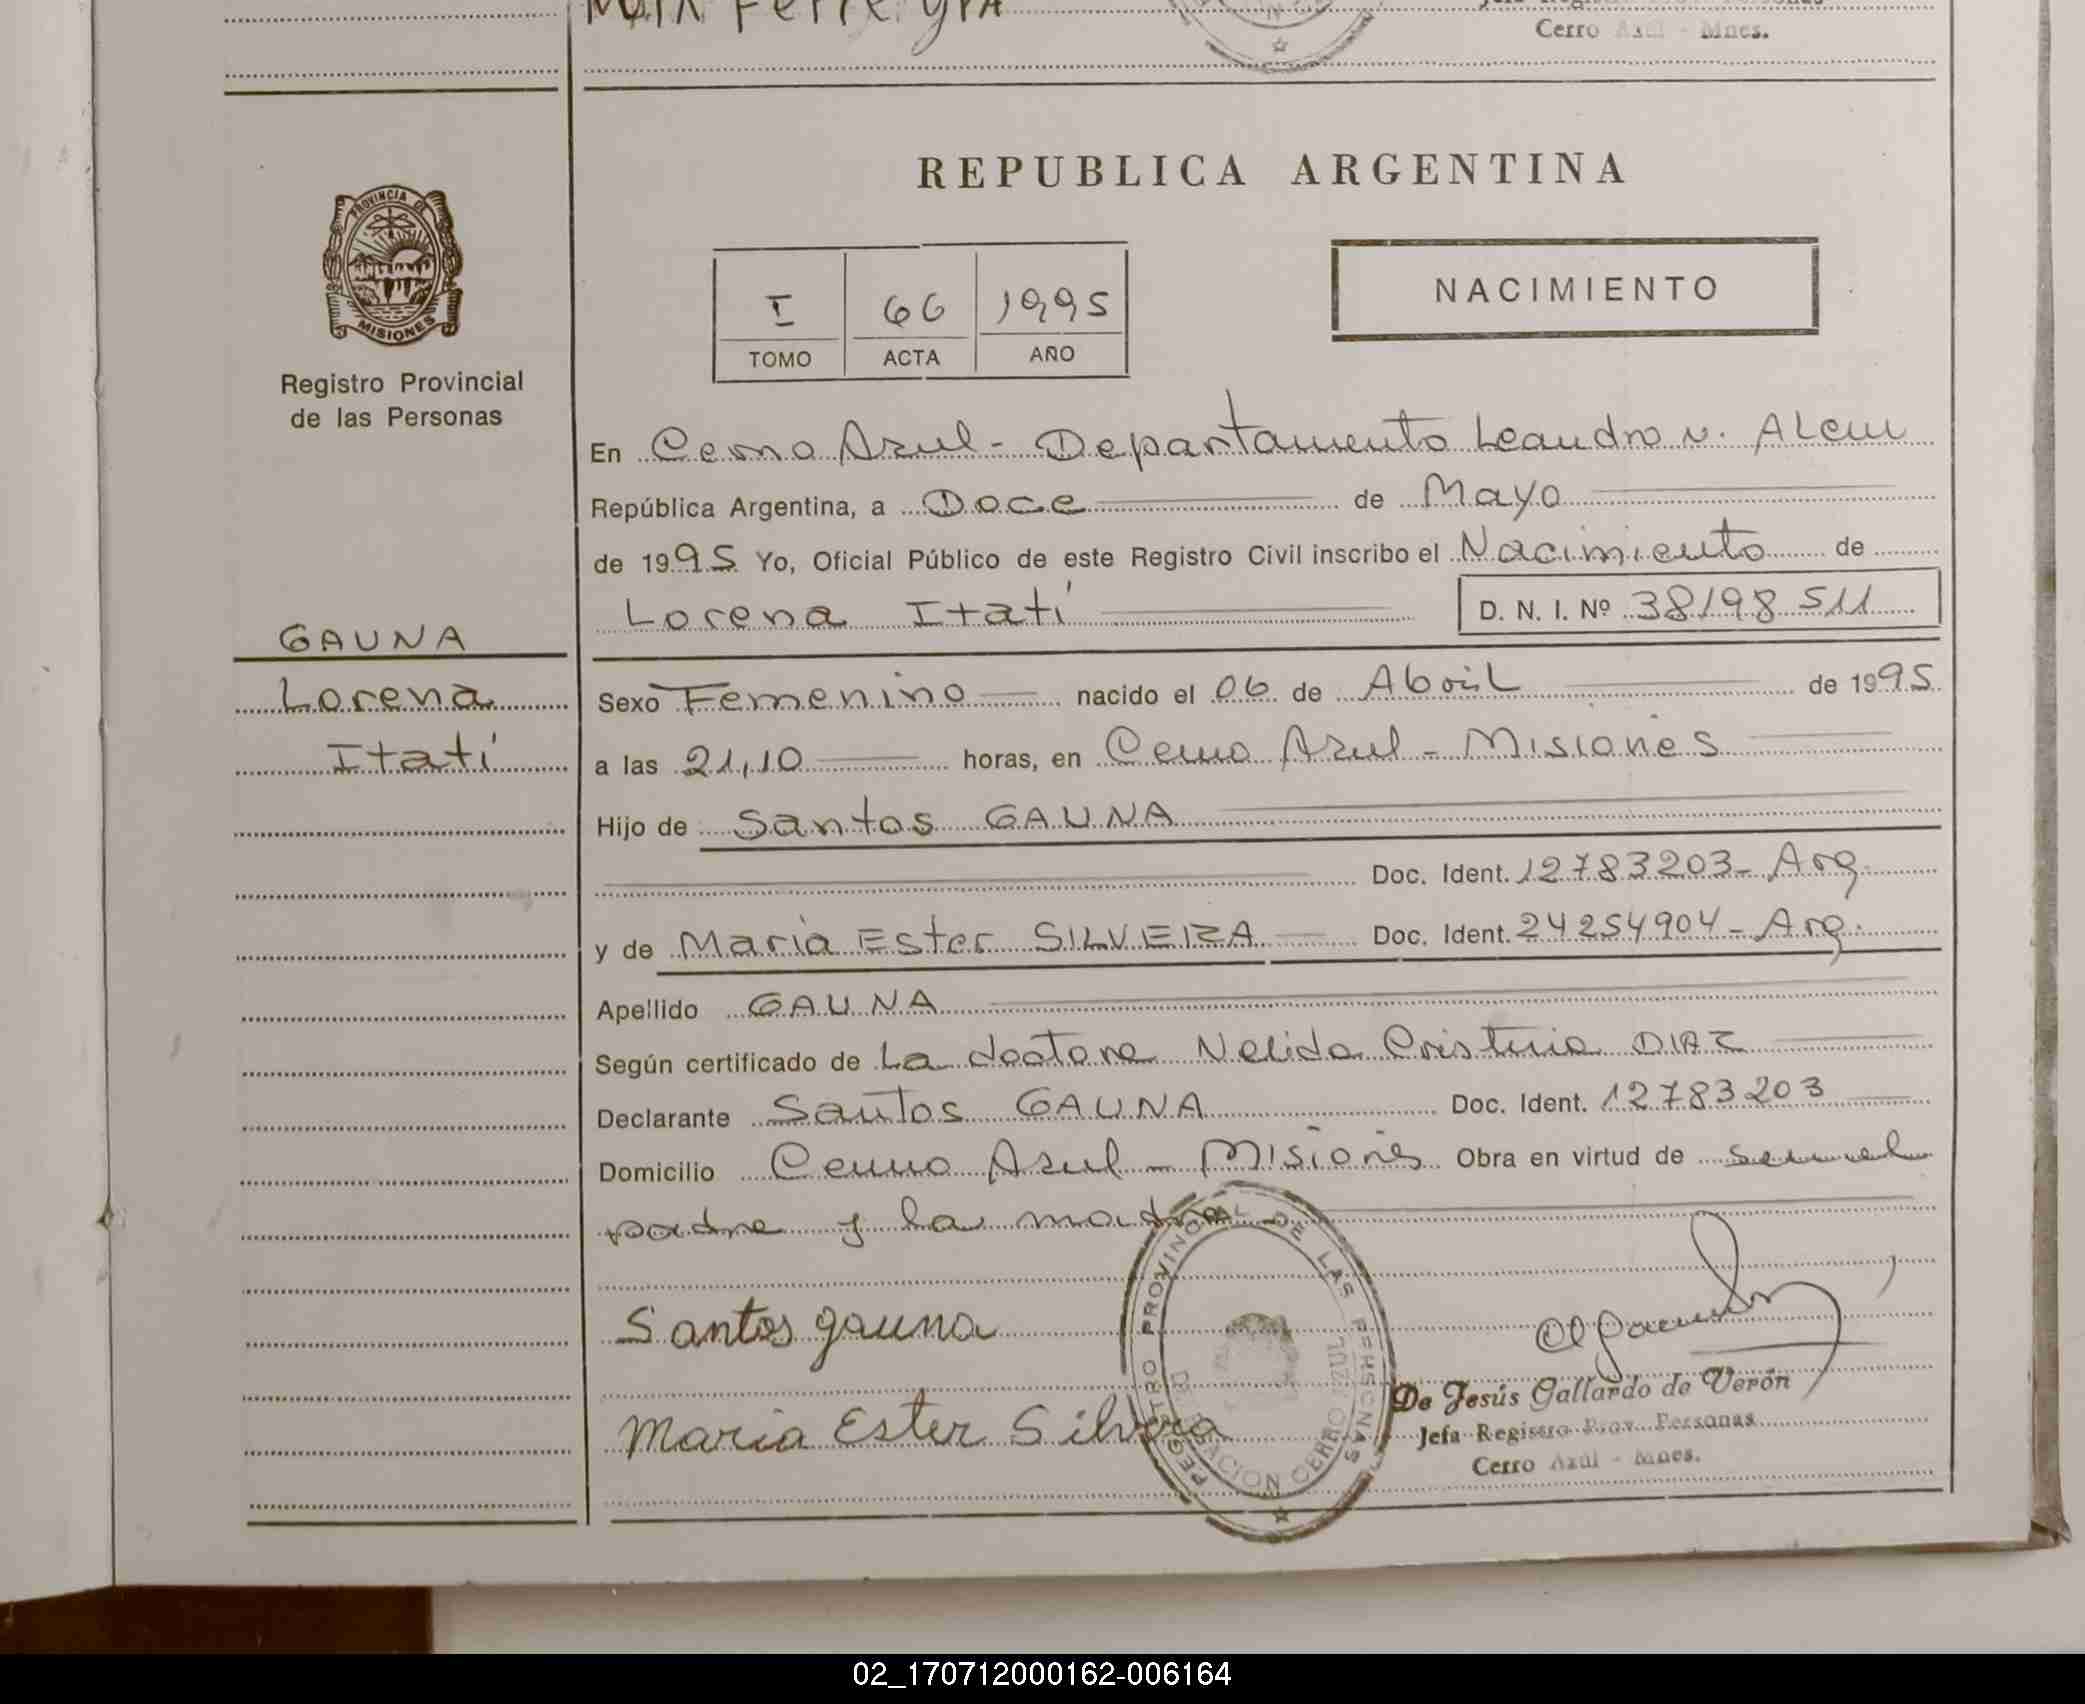 Cerro Azul - Mnes.
PROVINCIA DE
MISIONES
Registro Provincial
de las Personas
GAUNA
Lorena
Itatí
REPUBLICA ARGENTINA
I 66 1995
TOMO ACTA AÑO
NACIMIENTO
En Cerro Azul - Departamento Leandro N. Alem
República Argentina, a Doce de Mayo
de 1995 Yo, Oficial Público de este Registro Civil inscribo el Nacimiento de
Lorena Itatí D. N. I. Nº 38198511
Sexo Femenino nacido el 06 de Abril de 1995
a las 21,10 horas, en Cerro Azul - Misiones
Hijo de Santos GAUNA
Doc. Ident. 12783203 - Arg.
y de María Ester SILVEIRA Doc. Ident. 24254904 - Arg.
Apellido GAUNA
Según certificado de La doctora Nelida Cristina DIAZ
Declarante Santos GAUNA Doc. Ident. 12783203
Domicilio Cerro Azul - Misiones Obra en virtud de ser el
padre y la madre
Santos gauna
Maria Ester Silvera
REGISTRO PROVINCIAL DE LAS PERSONAS
DELEGACION CERRO AZUL
De Jesús Gallardo de Verón
Jefa Registro Prov. Personas
Cerro Azúl - Mnes.
02_170712000162-006164